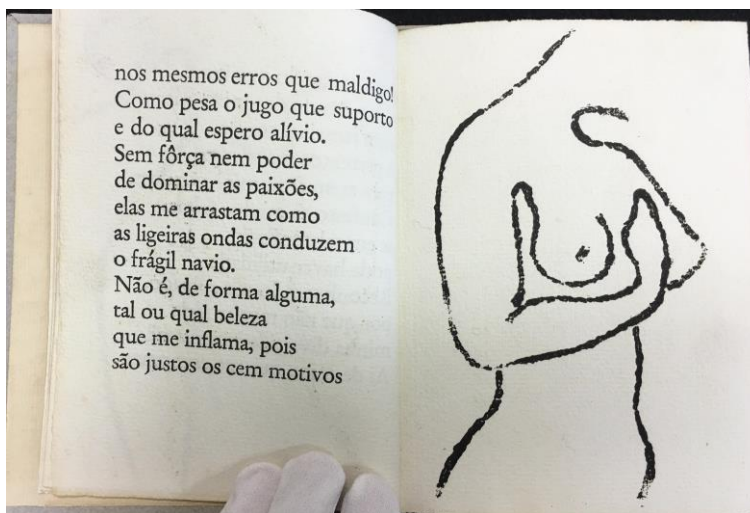 nos mesmos erros que maldigo!
Como pesa o jugo que suporto
e do qual espero alívio.
Sem fôrça nem poder
de dominar as paixões,
elas me arrastam como
as ligeiras ondas conduzem
o frágil navio.
Não é, de forma alguma,
tal ou qual beleza
que me inflama, pois
são justos os cem motivos